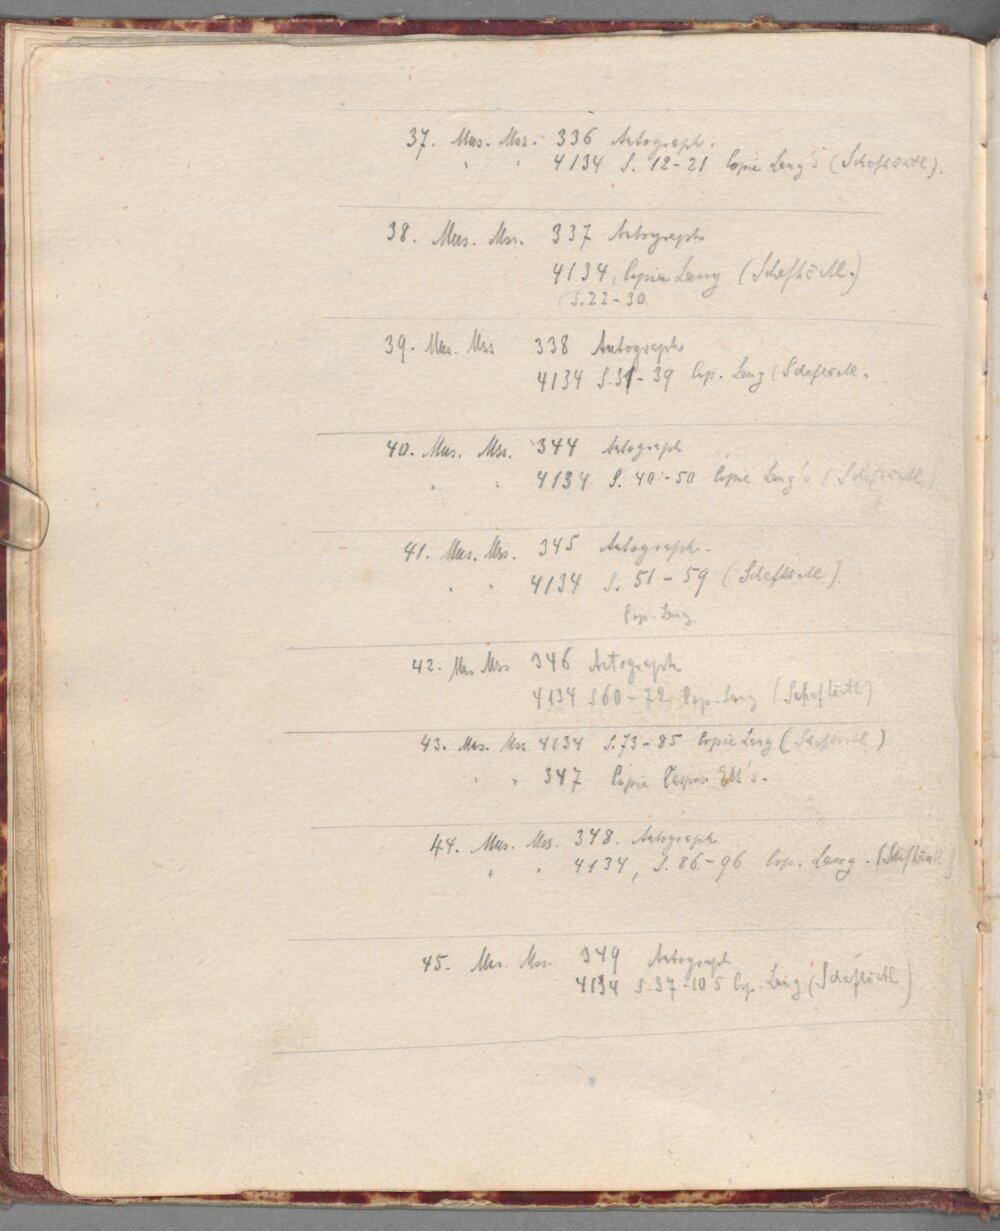 37. Mus. Mss. 336 Autograph.
" " 4134 S. 12-21 Copie Lang's (Schafhäutl).
38. Mus. Mss. 337 Autograph
4134, Copie Lang (Schafhäutl.)
(S. 22-30
39. Mus. Mss 338 Autograph
4134 S. 31-39 Cop. Lang (Schafhäutl.
40. Mus. Mss. 344 Autograph
" " 4134 S. 40-50 Copie Lang's (Schafhäutl)
41. Mus. Mss. 345 Autograph.
" " 4134 S. 51-59 (Schafhäutl)
Cop. Lang
42. Mus Mss 346 Autograph
4134 S 60-72 Cop. Lang (Schafhäutl)
43. Mus. Mss. 4134 S. 73-85 Copie Lang (Schafhäutl)
" " 347 Copie Caspar Ett's.
44. Mus. Mss. 348. Autograph
" " 4134, S. 86-96 Cop. Lang. (Schafhäutl)
45. Mus. Mss. 349 Autograph
4134 S. 97-105 Cop. Lang. (Schafhäutl)